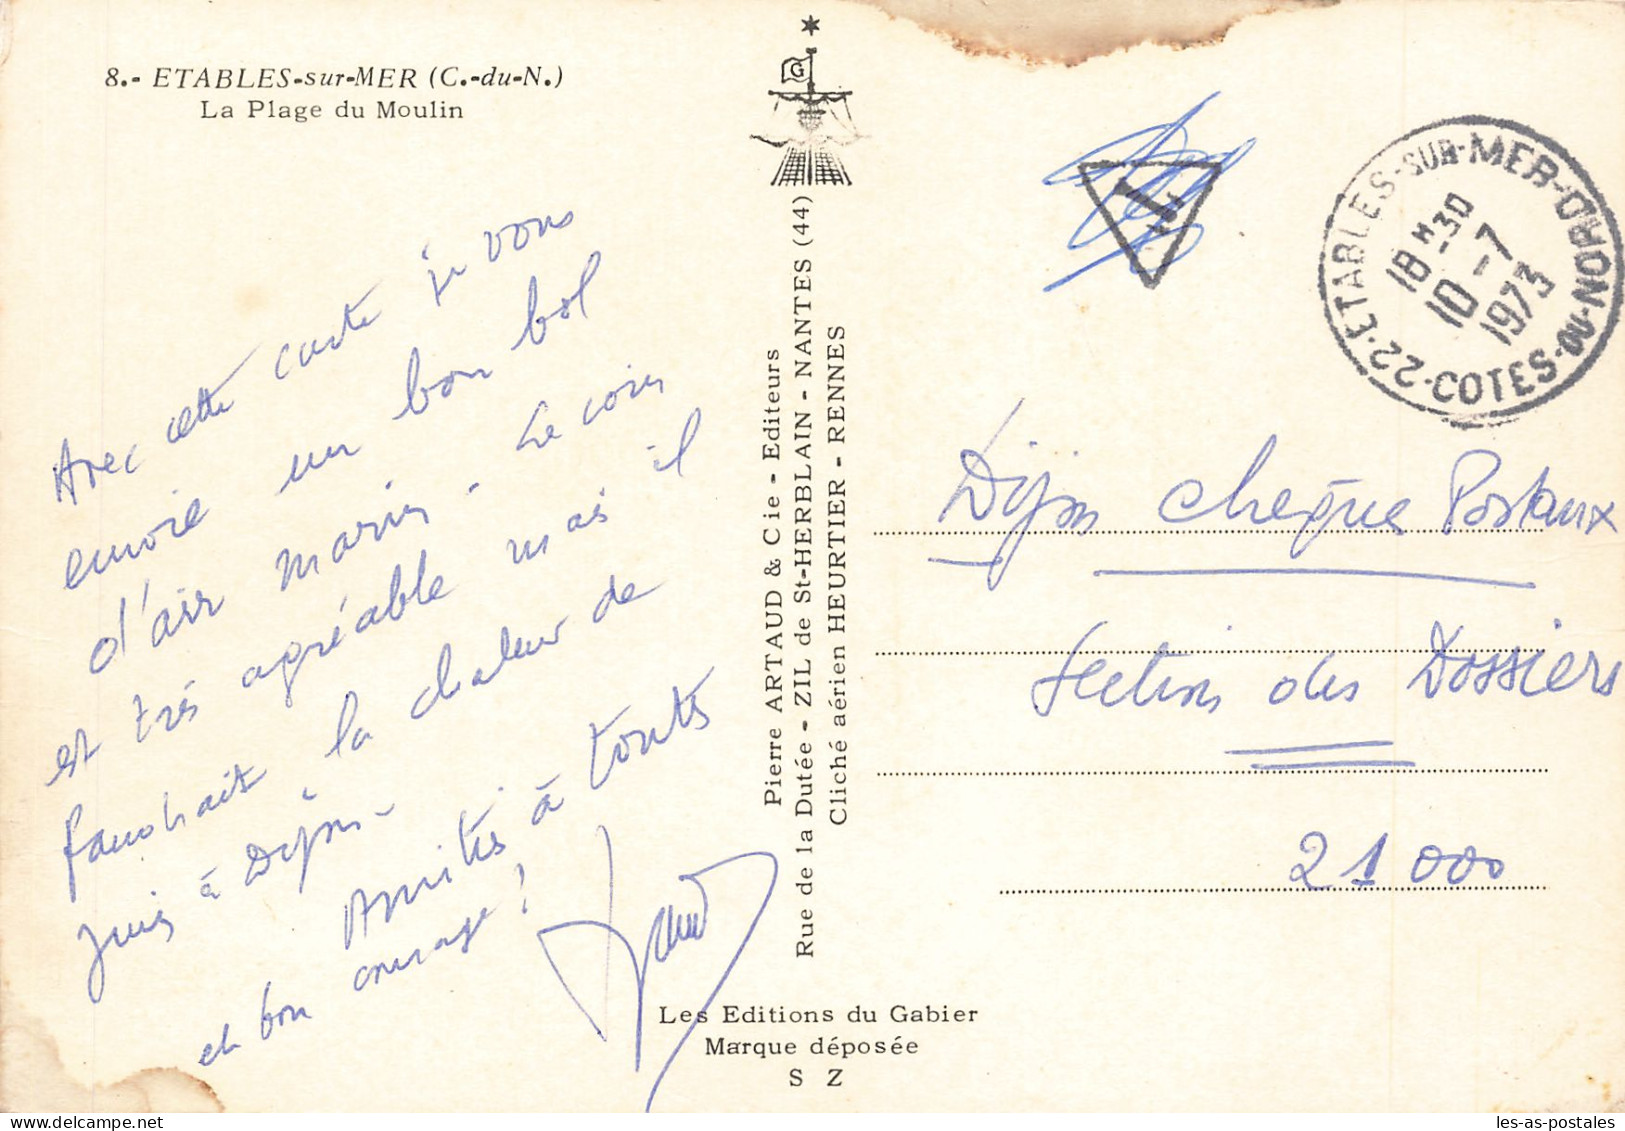 8.- ETABLES-sur-MER (C.-du-N.)
La Plage du Moulin
Avec cette carte je vous
envoie un bon bol
d'air marin. Le coin
est très agréable mais il
faudrait la chaleur de
Juin à Dijon -
Amitiés à toutes
et bon courage!
G
Pierre ARTAUD & Cie - Editeurs
Rue de la Dutée - ZIL de St-HERBLAIN - NANTES (44)
Cliché aérien HEURTIER - RENNES
Les Editions du Gabier
Marque déposée
S Z
T
22 - ETABLES-SUR-MER-DRON-NORD - COTES-DU-NORD
18 H -30
10 -7
1973
Dijon chèque Postaux
Section des Dossiers
21 000